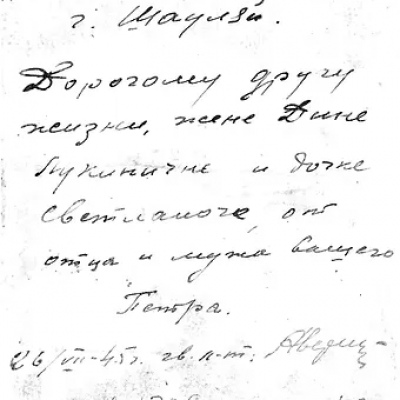 г. Шауляй.
Дорогому другу
жизни, жене Дине
Лукиничне и дочке
Светланочке, от
отца и мужа вашего
Петра.
26/VII-45г. гв. л-т.